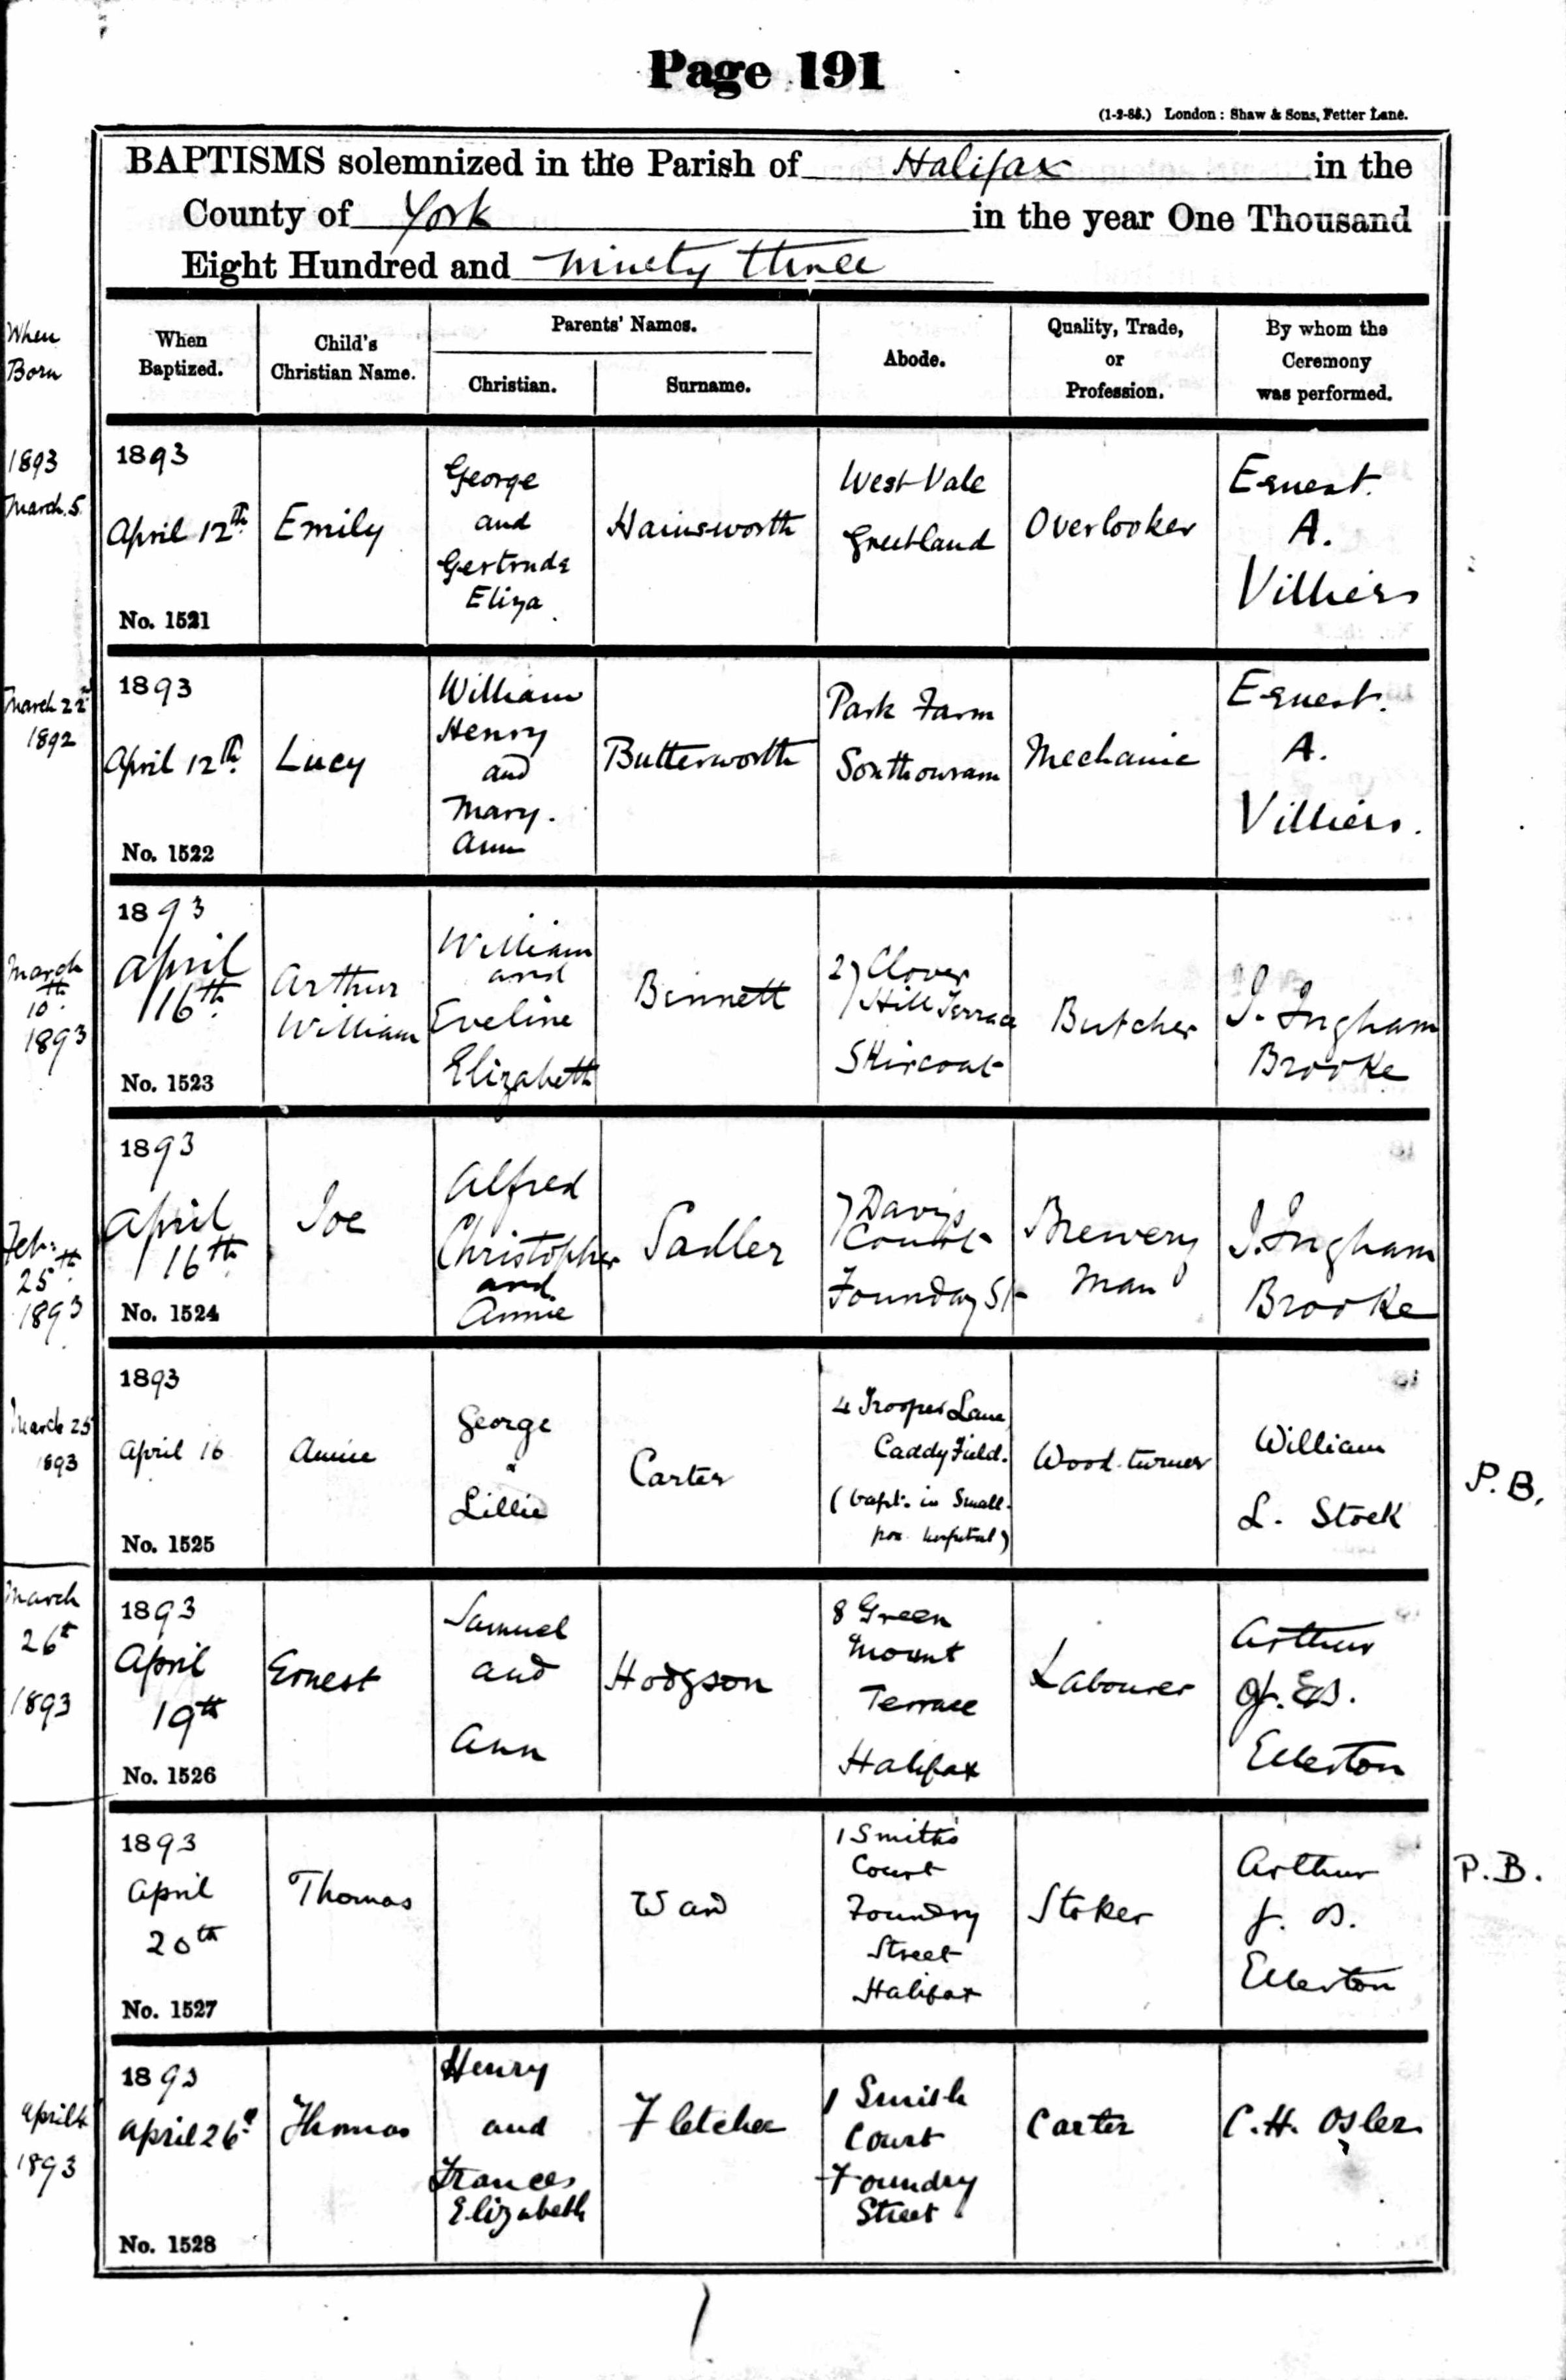 Page 191
(1-2-86.) London: Shaw & Sons, Fetter Lane.
BAPTISMS solemnized in the Parish of Halifax in the
County of York in the year One Thousand
Eight Hundred and ninety three
When
Born
When
Baptized.
Child's
Christian Name.
Parents' Names.
Christian.
Surname.
Abode.
Quality, Trade,
or
Profession.
By whom the
Ceremony
was performed.
1893
March. 5
1893
April 12th
No. 1521
Emily
George
and
Gertrude
Eliza.
Hainsworth
West Vale
Greetland
Overlooker
Ernest.
A.
Villiers
March 22nd
1892
1893
April 12th
No. 1522
Lucy
William
Henry
and
Mary.
Ann
Butterworth
Park Farm
Southowram
Mechanic
Ernest.
A.
Villiers.
March
10th
1893
1893
April
16th
No. 1523
Arthur
William
William
and
Eveline
Elizabeth
Binnett
27 Clover
Hill Terrace
Skircoat
Butcher
J. Ingham
Brooke
Feb:
25th
1893
1893
April
16th
No. 1524
Joe
Alfred
Christopher
and
Annie
Sadler
7 Davis
Court
Foundry St
Brewery
Man
J. Ingham
Brooke
March 25
1893
1893
April 16
No. 1525
Annie
George
&
Lillie
Carter
4 Trooper Lane
Caddy Field.
(bapt: in Small-
pox hospital)
Wood-turner
William
L. Stock
P.B.
March
26th
1893
1893
April
19th
No. 1526
Ernest
Samuel
and
Ann
Hodgson
8 Green
Mount
Terrace
Halifax
Labourer
Arthur
Ellerton
1893
April
20th
No. 1527
Thomas
Ward
1 Smith's
Court
Foundry
Street
Halifax
Stoker
Arthur
J. B.
Ellerton
P.B.
April 4
1893
1893
April 26
No. 1528
Thomas
Henry
and
Frances
Elizabeth
Fletcher
1 Smith
Court
Foundry
Street
Carter
C. H. Osler